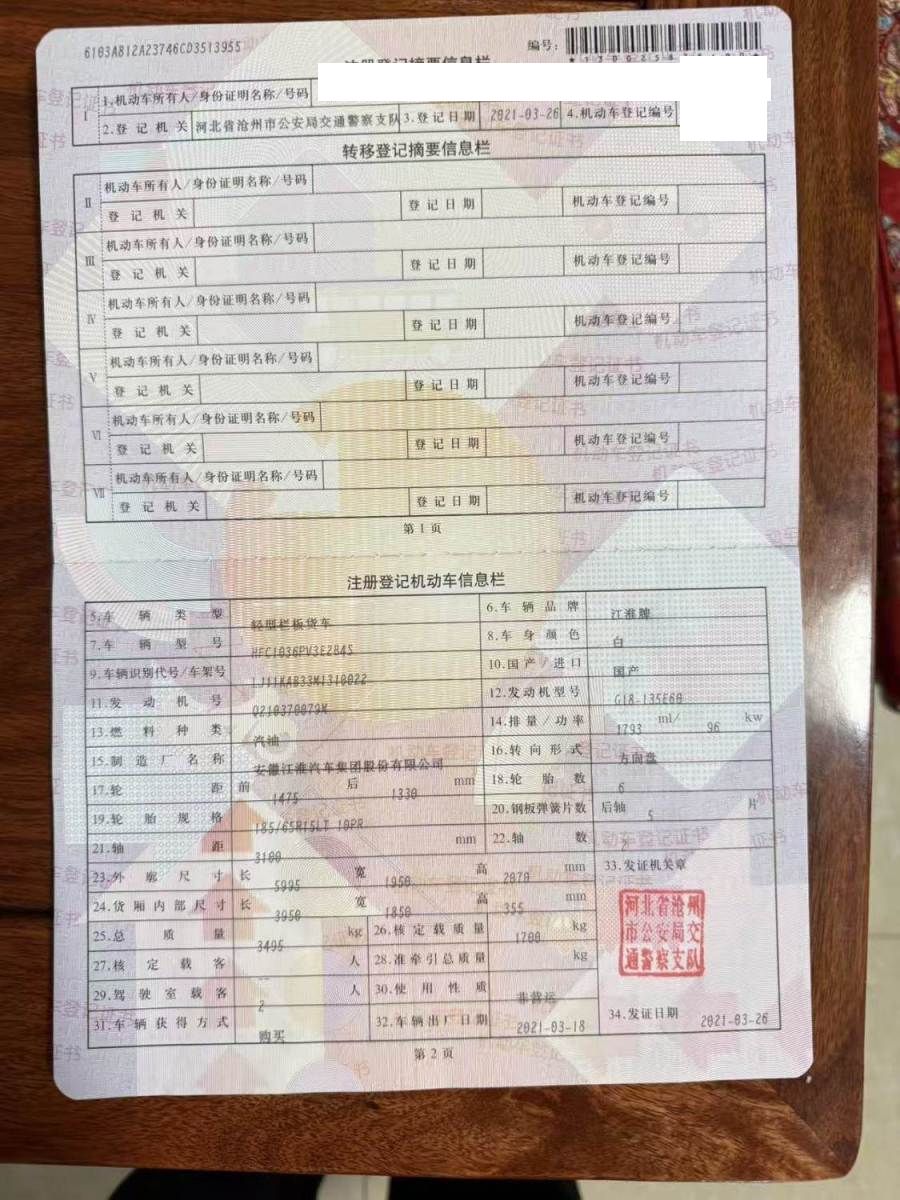 6103AB12A23746CD3513955
编号:
注册登记摘要信息栏
Ⅰ
1.机动车所有人/身份证明名称/号码
2.登记机关 河北省沧州市公安局交通警察支队 3.登记日期 2021-03-26 4.机动车登记编号
转移登记摘要信息栏
Ⅱ
机动车所有人/身份证明名称/号码
登记机关 登记日期 机动车登记编号
Ⅲ
机动车所有人/身份证明名称/号码
登记机关 登记日期 机动车登记编号
Ⅳ
机动车所有人/身份证明名称/号码
登记机关 登记日期 机动车登记编号
Ⅴ
机动车所有人/身份证明名称/号码
登记机关 登记日期 机动车登记编号
Ⅵ
机动车所有人/身份证明名称/号码
登记机关 登记日期 机动车登记编号
Ⅶ
机动车所有人/身份证明名称/号码
登记机关 登记日期 机动车登记编号
第1页
注册登记机动车信息栏
5.车辆类型 轻型栏板货车 6.车辆品牌 江淮牌
7.车辆型号 HFC1036PV3E2B4S 8.车身颜色 白
9.车辆识别代号/车架号 LJ11KAB33M1310022 10.国产/进口 国产
11.发动机号 Q210370079K 12.发动机型号 G18-135E60
13.燃料种类 汽油 14.排量/功率 1793 ml/ 96 kw
15.制造厂名称 安徽江淮汽车集团股份有限公司 16.转向形式 方向盘
17.轮距 前 1475 后 1330 mm 18.轮胎数 6
19.轮胎规格 185/65R15LT 10PR 20.钢板弹簧片数 后轴 5 片
21.轴距 3100 mm 22.轴数
23.外廓尺寸 长 5995 宽 1950 高 2070 mm 33.发证机关章
24.货厢内部尺寸 长 3950 宽 1850 高 355 mm
25.总质量 3495 kg 26.核定载质量 1700 kg
27.核定载客 -- 人 28.准牵引总质量 kg
29.驾驶室载客 2 人 30.使用性质 非营运
31.车辆获得方式 购买 32.车辆出厂日期 2021-03-18 34.发证日期 2021-03-26
河北省沧州
市公安局交
通警察支队
第2页